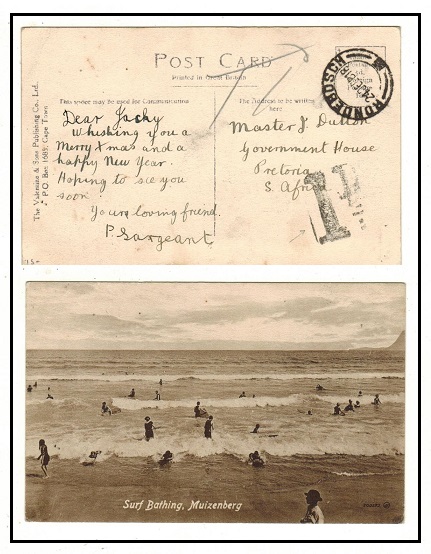 POST CARD
Printed in Great Britain
This space may be used for Communication
The Address to be written
here
The Valentine & Sons Publishing Co., Ltd.
P.O. Box 1685, Cape Town
Dear Jacky
Whishing you a
Merry Xmas and a
happy New Year.
Hoping to see you
soon
Your loving friend.
P Sargeant
Master J. Dutton
Government House
Pretoria
S. Africa
RONDEBOSCH
1d
Surf Bathing, Muizenberg